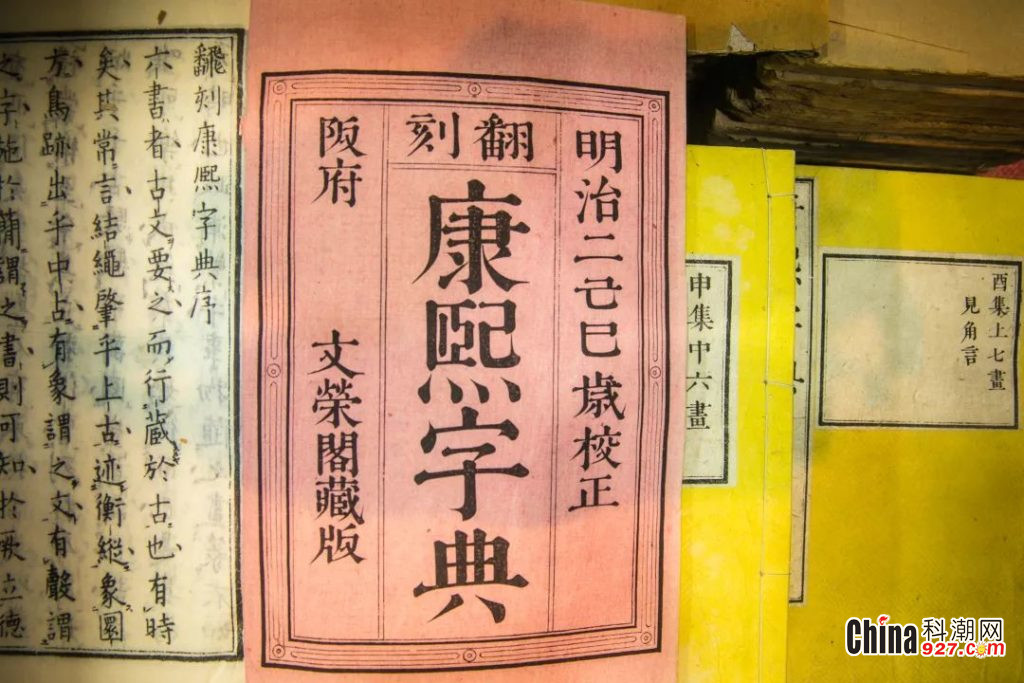 酉集上七畫
見角言
申集中六畫
明治二己巳歳校正
翻刻
康熙字典
阪府
文榮閣藏版
飜刻康熙字典序
夲書者古文要之而行藏於古也有時
矣其常言結繩肇乎上古迹衡縱象圜
方鳥跡出乎中占有象謂之文有聲謂
之字施於簡謂之書則可知於厥立德
China科潮网
927.com